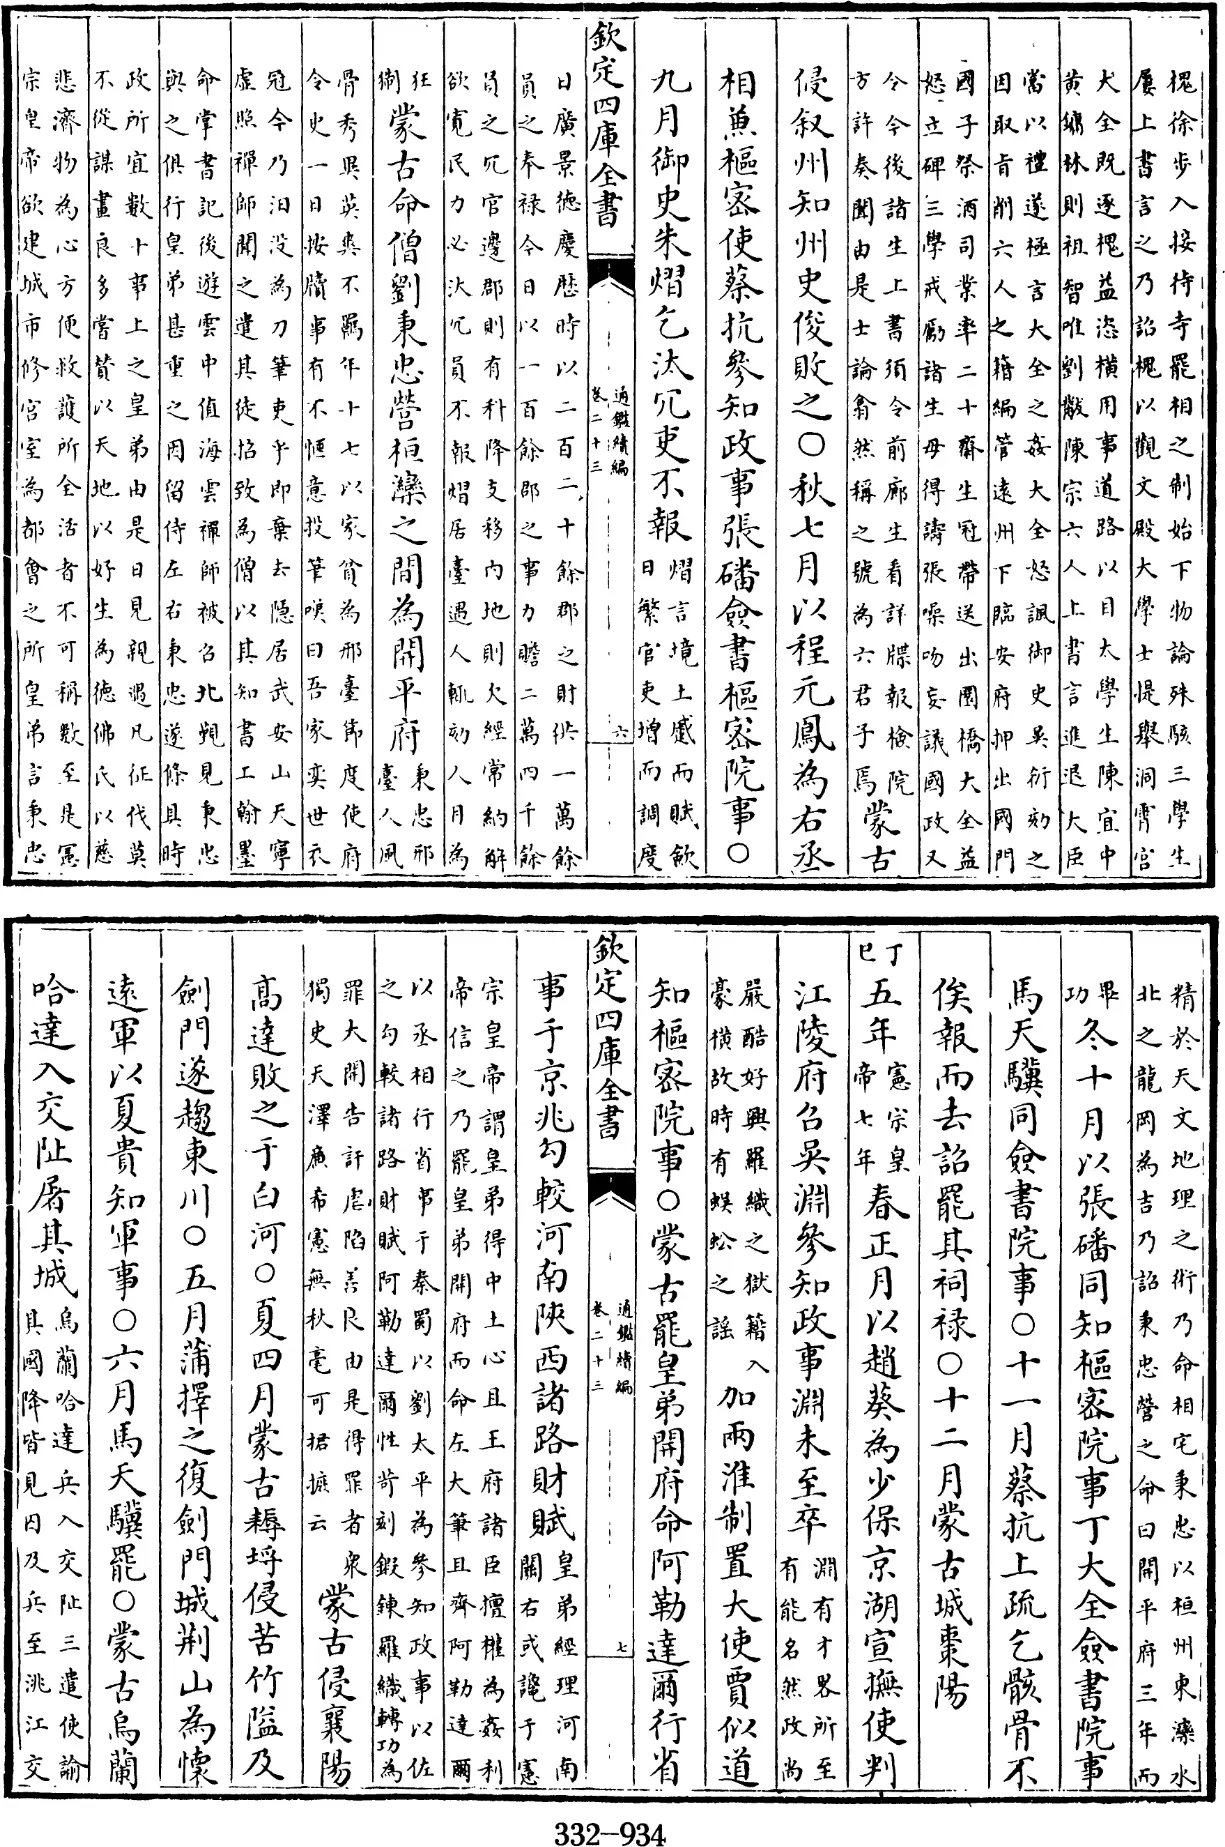 槐徐步入接待寺罷相之制始下物論殊駭三學生
屢上書言之乃詔槐以觀文殿大學士提舉洞霄宮
大全既逐槐益恣横用事道路以目太學生陳宜中
黄鏞林則祖智唯劉黻陳宗六人上書言進退大臣
當以禮遂極言大全之姦大全怒諷御史吳衍劾之
因取旨削六人之籍編管遠州下臨安府押出國門
國子祭酒司業率二十齋生冠帶送出園橋大全益
怒立碑三學戒勵諸生毋得譸張噪吻妄議國政又
令今後諸生上書須令前廊生看詳牒報檢院
方許奏聞由是士論翕然稱之號為六君子焉
蒙古
侵叙州知州史俊敗之○秋七月以程元鳳為右丞
相兼樞密使蔡抗參知政事張磻僉書樞密院事○
九月御史朱熠乞汰冗吏不報
熠言境土蹙而賦歛
日繁官吏增而調度
欽定四庫全書
通鑑續編
卷二十三
六
日廣景德慶歴時以二百二十餘郡之財供一萬餘
員之奉禄今日以一百餘郡之事力贍二萬四千餘
員之冗官邊郡則有科降支移内地則欠經常納解
欲寛民力必汰冗員不報熠居臺遇人輒劾人目為
狂
猘
蒙古命僧劉秉忠營桓灤之間為開平府
秉忠邢
臺人風
骨秀異英爽不羈年十七以家貧為邢臺節度使府
令史一日按牘事有不愜意投筆嘆曰吾家奕世衣
冠今乃汨没為刀筆吏乎即棄去隠居武安山天寧
虚照禪師聞之遣其徒招致為僧以其知書工翰墨
命掌書記後遊雲中值海雲禪師被召北覲見秉忠
與之俱行皇弟甚重之因留侍左右秉忠遂條具時
政所宜數十事上之皇弟由是日見親遇凡征伐莫
不從謀畫良多嘗賛以天地以好生為德佛氏以慈
悲濟物為心方便救護所全活者不可稱數至是憲
宗皇帝欲建城市修宫室為都會之所皇弟言秉忠
精於天文地理之術乃命相宅秉忠以桓州東灤水
北之龍岡為吉乃詔秉忠營之命曰開平府三年而
畢
功
冬十月以張磻同知樞密院事丁大全僉書院事
馬天驥同僉書院事○十一月蔡抗上疏乞骸骨不
俟報而去詔罷其祠禄○十二月蒙古城棗陽
丁
巳
五年
憲宗皇
帝七年
春正月以趙葵為少保京湖宣撫使判
江陵府召吴淵參知政事淵未至卒
淵有才畧所至
有能名然政尚
嚴酷好興羅織之獄籍入
豪横故時有蜈蚣之謡
加兩淮制置大使賈似道
知樞密院事○蒙古罷皇弟開府命阿勒達爾行省
欽定四庫全書
通鑑續編
卷二十三
七
事于京兆勾較河南陜西諸路財賦
皇弟經理河南
關右或讒于憲
宗皇帝謂皇弟得中土心且王府諸臣擅權為姦利
帝信之乃罷皇弟開府而命左大筆且齊阿勒達爾
以丞相行省事于秦蜀以劉太平為參知政事以佐
之勾較諸路財賦阿勒達爾性苛刻鍜鍊羅織轉功為
罪大開告訐虐陷善良由是得罪者衆
獨史天澤亷希憲無秋毫可捃摭云
蒙古侵襄陽
高達敗之于白河○夏四月蒙古耨埒侵苦竹隘及
劍門遂趨東川○五月蒲擇之復劍門城荆山為懷
逺軍以夏貴知軍事○六月馬天驥罷○蒙古烏蘭
哈達入交阯屠其城
烏蘭哈達兵入交阯三遣使諭
其國降皆見囚及兵至洮江交
332-934